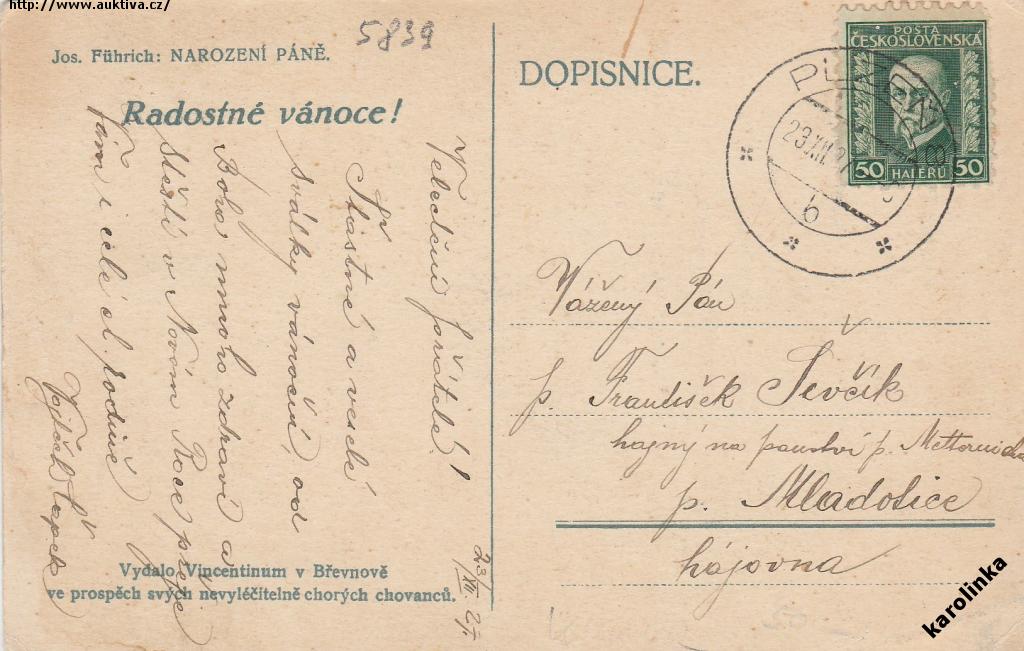 http://www.auktiva.cz/
5839
Jos. Führich: NARODZENÍ PÁNĚ.
Radostné vánoce!
DOPISNICE.
POŠTA
ČESKOSLOVENSKÁ
50 HALÉŘŮ 50
23 XII
b
Velectění přátelé!
Šťastné a veselé
svátky vánoční, od
Boha mnoho zdraví a
štěstí v Novém Roce přeje
Vám i celé ct. rodině
Vojtěch
23/XII. 27.
Vážený Pán
p. František Ševčík
hajný na panství p. Metternicha
p. Mladotice
hájovna
Vydalo Vincentinum v Břevnově
ve prospěch svých nevyléčitelně chorých chovanců.
karolinka